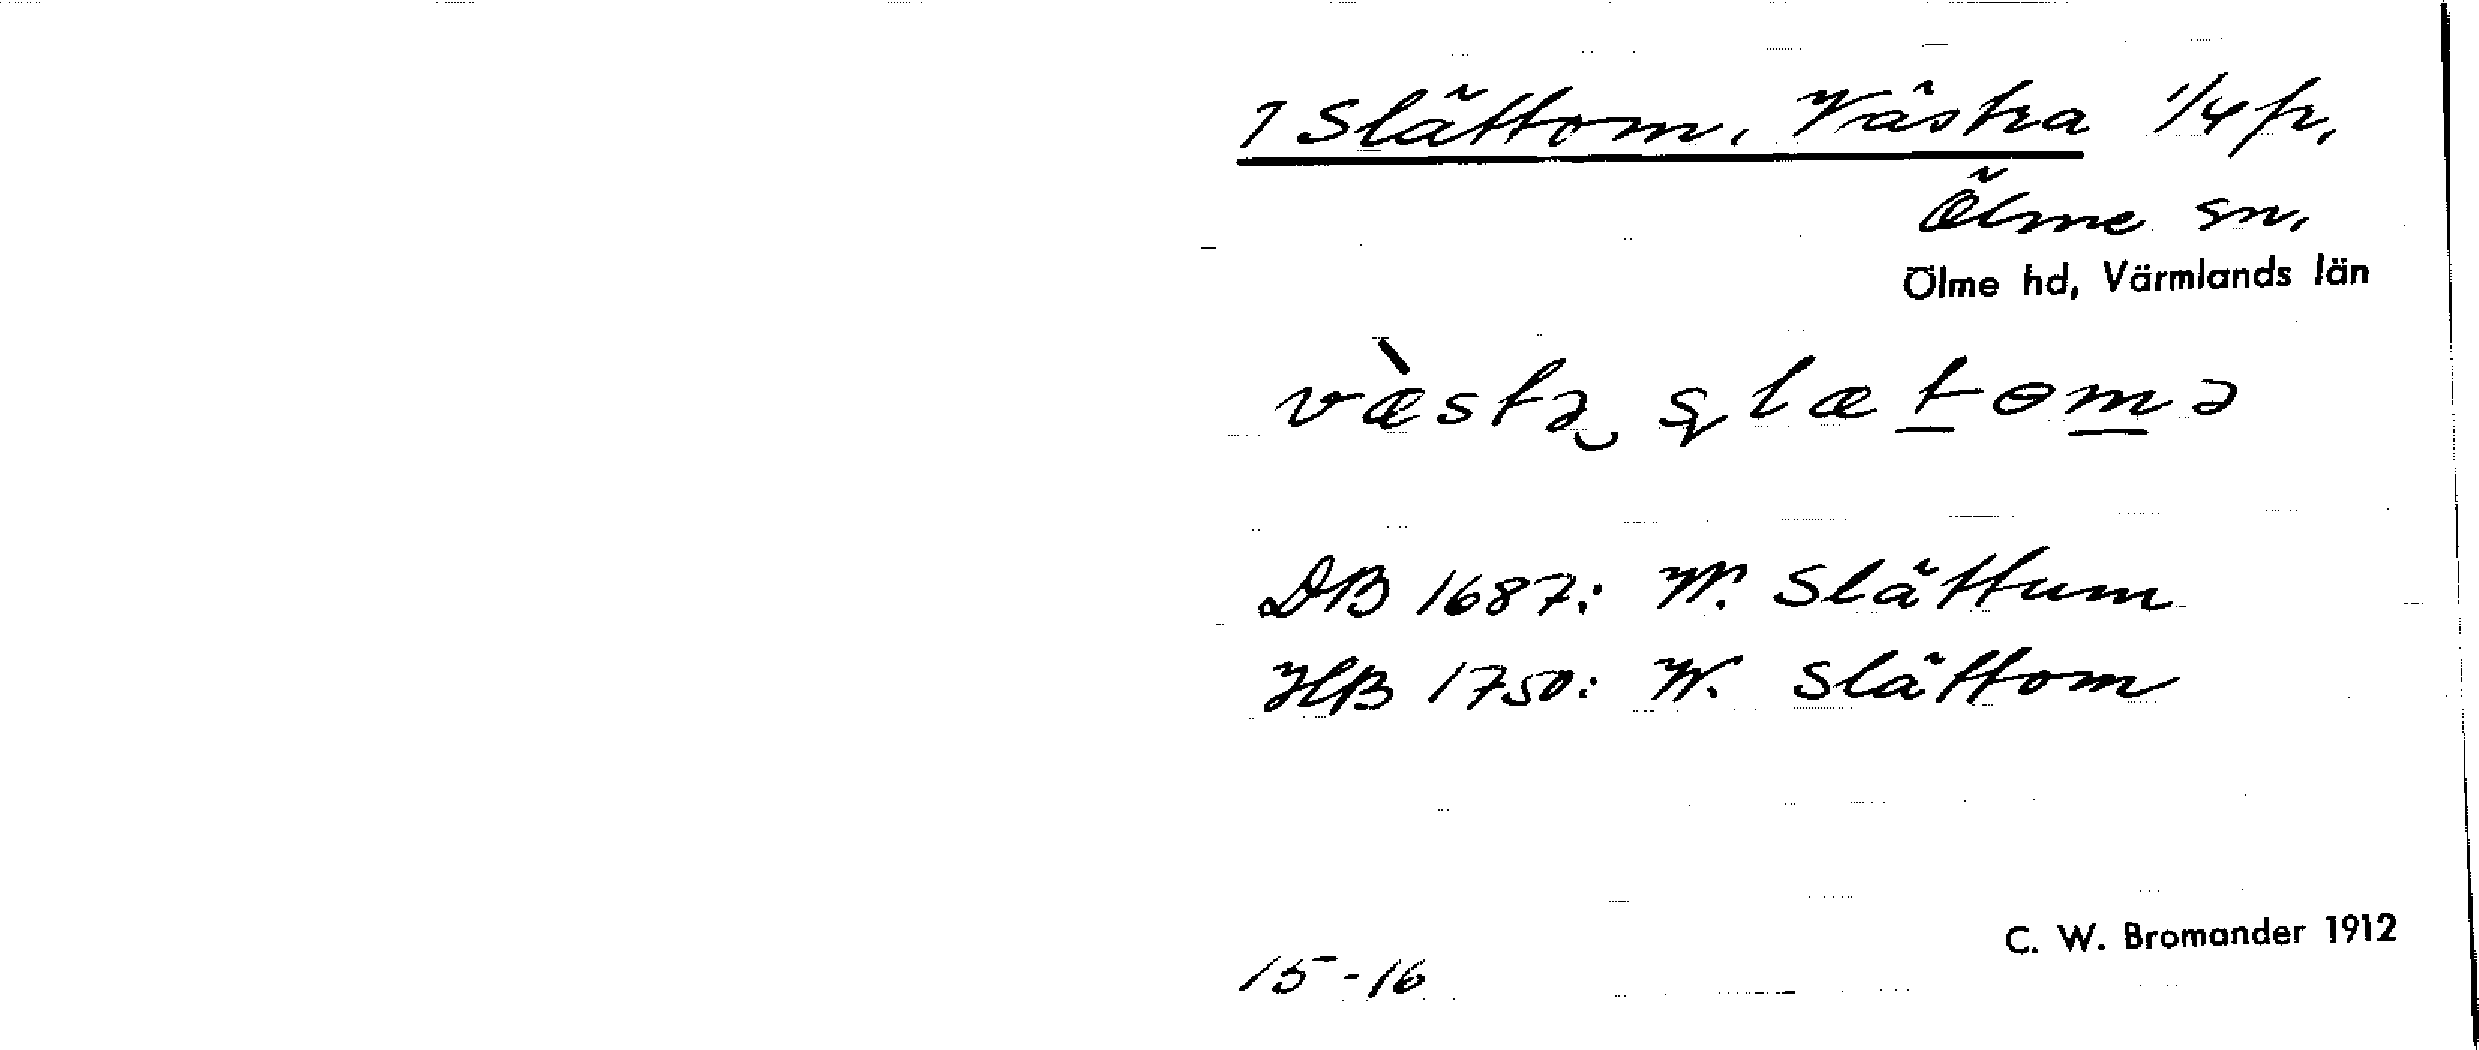 1 Slättom, Västra 1/4 fr.
Ölme sn.
Ölme hd, Värmlands län
DB 1687: W. Slättum
HB 1750: W. Slättom
C. W. Bromander 1912
15-16